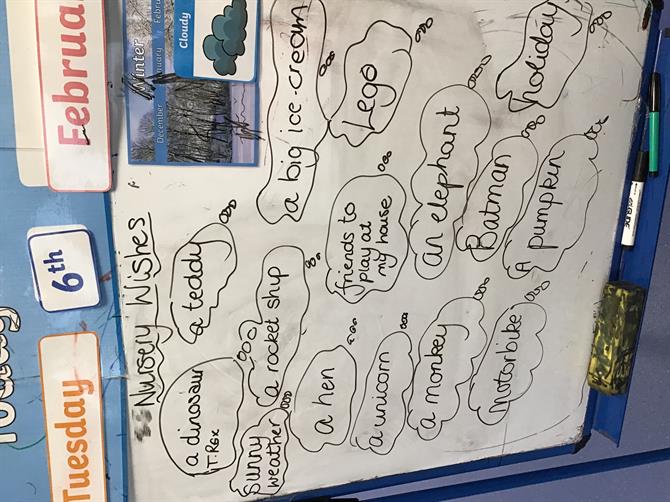 Today
Tuesday
6th
Februa
Nursery Wishes
Winter
December
January
Februa
Cloudy
a dinosaur
T.Rex
a teddy
sunny
weather
a rocket ship
a big ice-cream
a hen
friends to
play at
my house
Lego
a unicorn
a monkey
an elephant
Motorbike
Batman
A pumpkin
holiday